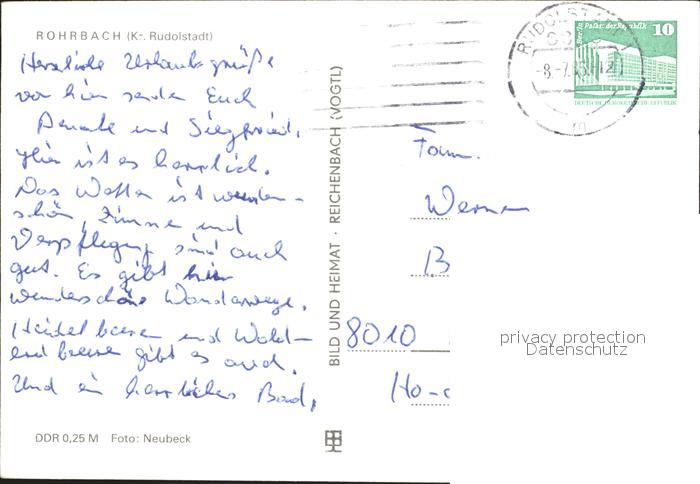 ROHRBACH (Kr. Rudolstadt)
Herzliche Urlaubsgrüße
von hier senden Euch
Renate und Siegfried.
Hier ist es herrlich.
Das Wetter ist wunder-
schön, Zimmer und
Verpflegung sind auch
gut. Es gibt hier
wunderschöne Wanderwege.
Heidelbeeren und Wald-
erdbeeren gibt es auch.
Und ein herrliches Bad.
DDR 0,25 M Foto: Neubeck
BILD UND HEIMAT · REICHENBACH (VOGTL)
RUDOLSTADT
-8.-7.
Berlin Palast der Republik 10
DEUTSCHE DEMOKRATISCHE REPUBLIK
Fam.
Werner
B
8010
privacy protection
Datenschutz